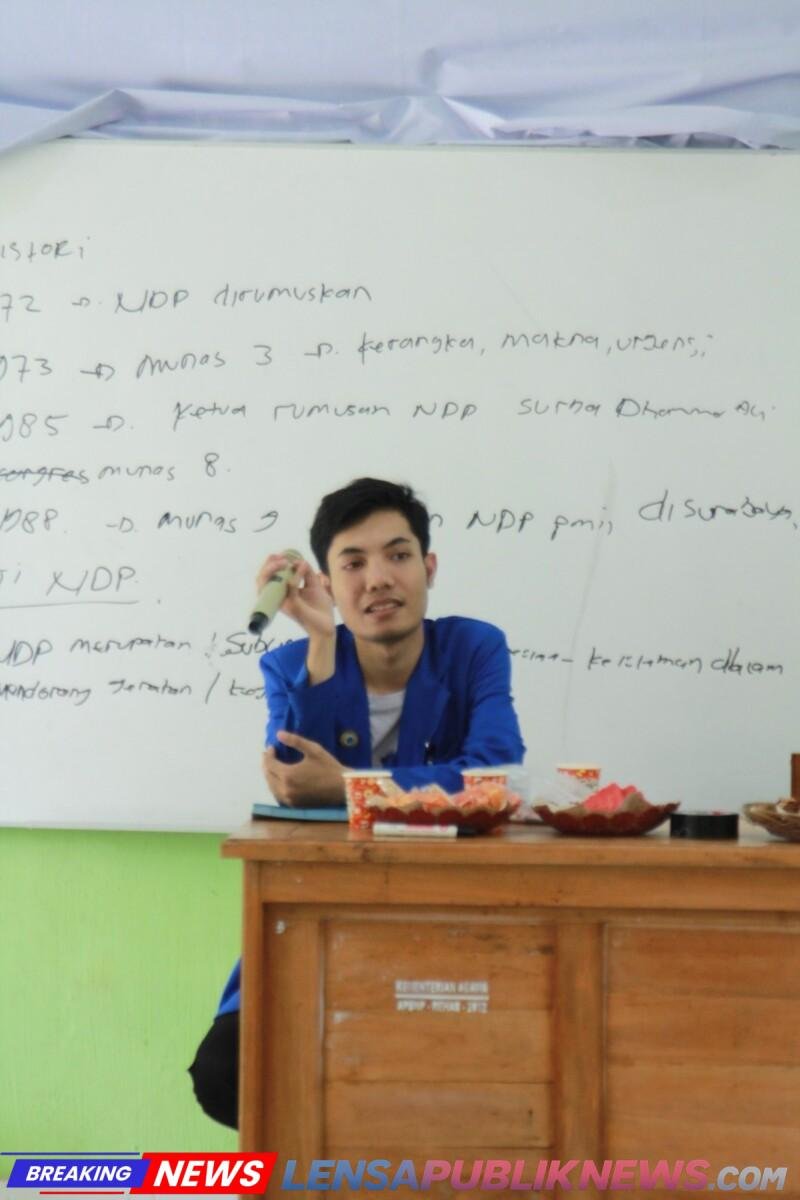 istori
72 → NDP dirumuskan
973 → munas 3 → kerangka, makna, urgensi
985 → Ketua rumusan NDP Surya Dharma Ali
kongres munas 8.
1988. → munas 9 NDP pmii disurabaya,
ti NDP.
NDP merupakan keislaman dalam
KEMENTERIAN AGAMA
APBNP - REHAB - 2012
BREAKING NEWS LENSAPUBLIKNEWS.COM